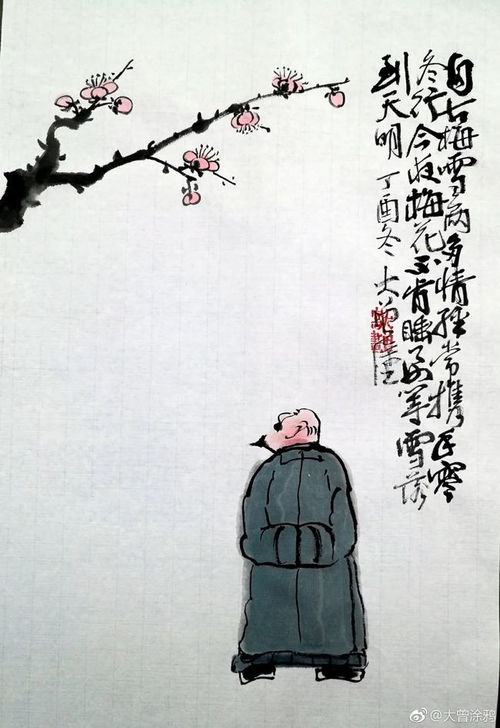 自古梅雪两多情经常携手寒
冬行今夜梅花不肯睡为等雪落
到天明 丁酉冬 大曾
@大曾涂鸦